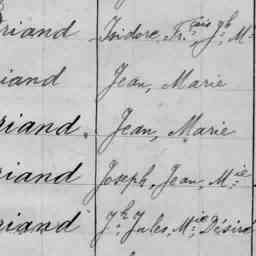 riand Isidore, Fr.çois Jh M
riand Jean, Marie
riand. Jean, Marie
riand Joseph, Jean, Mie
riand Jh Jules, Mie Désiré